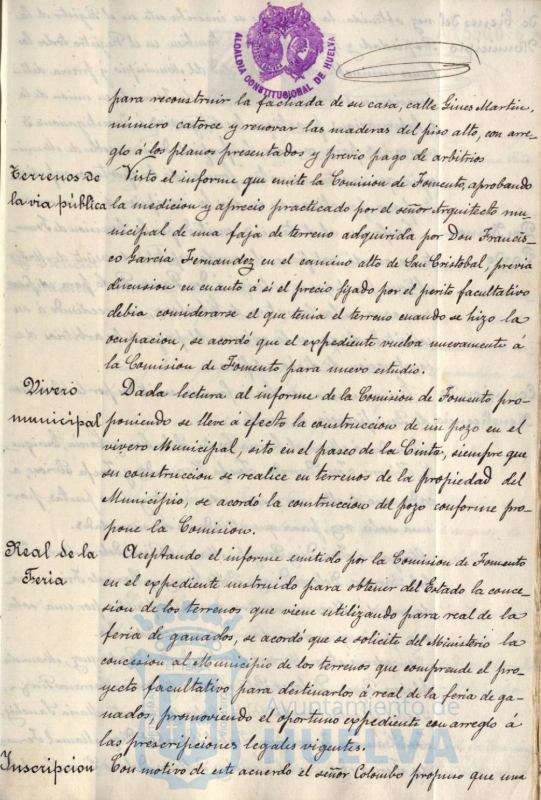 ALCALDIA CONSTITUCIONAL DE HUELVA
para reconstruir la fachada de su casa, calle Gines Martin,
número catorce y renovar las maderas del piso alto, con arre-
glo á los planos presentados y previo pago de arbitrios
Terrenos de
la via pública
Visto el informe que emite la Comision de Fomento, aprobando
la medicion y aprecio practicado por el señor Arquitecto mu-
nicipal de una faja de terreno adquirida por Don Francis-
co García Fernandez en el camino alto de San Cristobal, previa
discusion en cuanto á si el precio fijado por el perito facultativo
debia considerarse el que tenia el terreno cuando se hizo la
ocupacion, se acordó que el expediente vuelva nuevamente á
la Comision de Fomento para nuevo estudio.
Vivero
municipal
Dada lectura al informe de la Comision de Fomento pro-
poniendo se lleve á efecto la construccion de un pozo en el
vivero Municipal, sito en el paseo de la Cinta, siempre que
su construccion se realice en terrenos de la propiedad del
Municipio, se acordó la contruccion del pozo conforme pro-
pone la Comision.
Real de la
Feria
Aceptando el informe emitido por la Comision de Fomento
en el expediente instruido para obtener del Estado la conce-
sion de los terrenos que viene utilizando para real de la
feria de ganados, se acordó que se solicite del Ministerio la
concesion al Municipio de los terrenos que comprende el pro-
yecto facultativo para destinarlos á real de la feria de ga-
nados, promoviendo el oportuno expediente con arreglo á
las prescripciones legales vigentes.
Inscripcion
Con motivo de este acuerdo el señor Colombo propuso que una
Ayuntamiento de
HUELVA